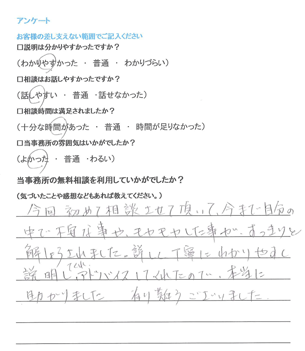 アンケート
お客様の差し支えない範囲でご記入ください
口説明は分かりやすかったですか？
（わかりやすかった ・ 普通 ・ わかりづらい）
口相談はお話しやすかったですか？
（話しやすい ・ 普通 ・話せなかった）
口相談時間は満足されましたか？
（十分な時間があった ・ 普通 ・ 時間が足りなかった）
口当事務所の雰囲気はいかがでしたか？
（よかった ・ 普通 ・わるい）
当事務所の無料相談を利用していかがでしたか？
（気づいたことや感想などもあれば教えてください。）
今回初めて相談させて頂いて、今まで自分の
中で不安な事や、モヤモヤした事が、すっきりと
解消されました。詳しく丁寧にわかりやすく
説明してくれ、アドバイスしてくれたので、本当に
助かりました 有り難うございました。